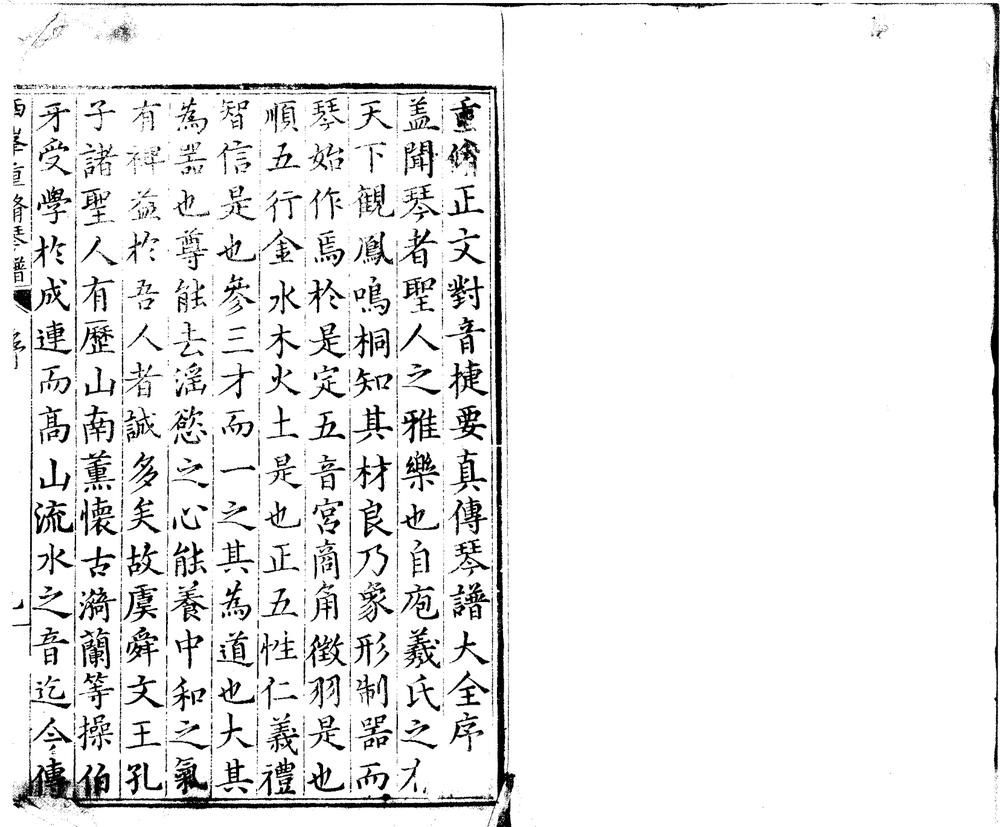 重修正文對音捷要真傳琴譜大全序
盖聞琴者聖人之雅樂也自庖羲氏之
天下觀鳳鳴桐知其材良乃象形制器而
琴始作焉於是定五音宮商角徵羽是也
順五行金水木火土是也正五性仁義禮
智信是也參三才而一之其為道也大其
為器也尊能去淫慾之心能養中和之氣
有裨益於吾人者誠多矣故虞舜文王孔
子諸聖人有歷山南薰懷古漪蘭等操伯
牙受學於成連而高山流水之音迄今傳
西峯重脩琴譜 序